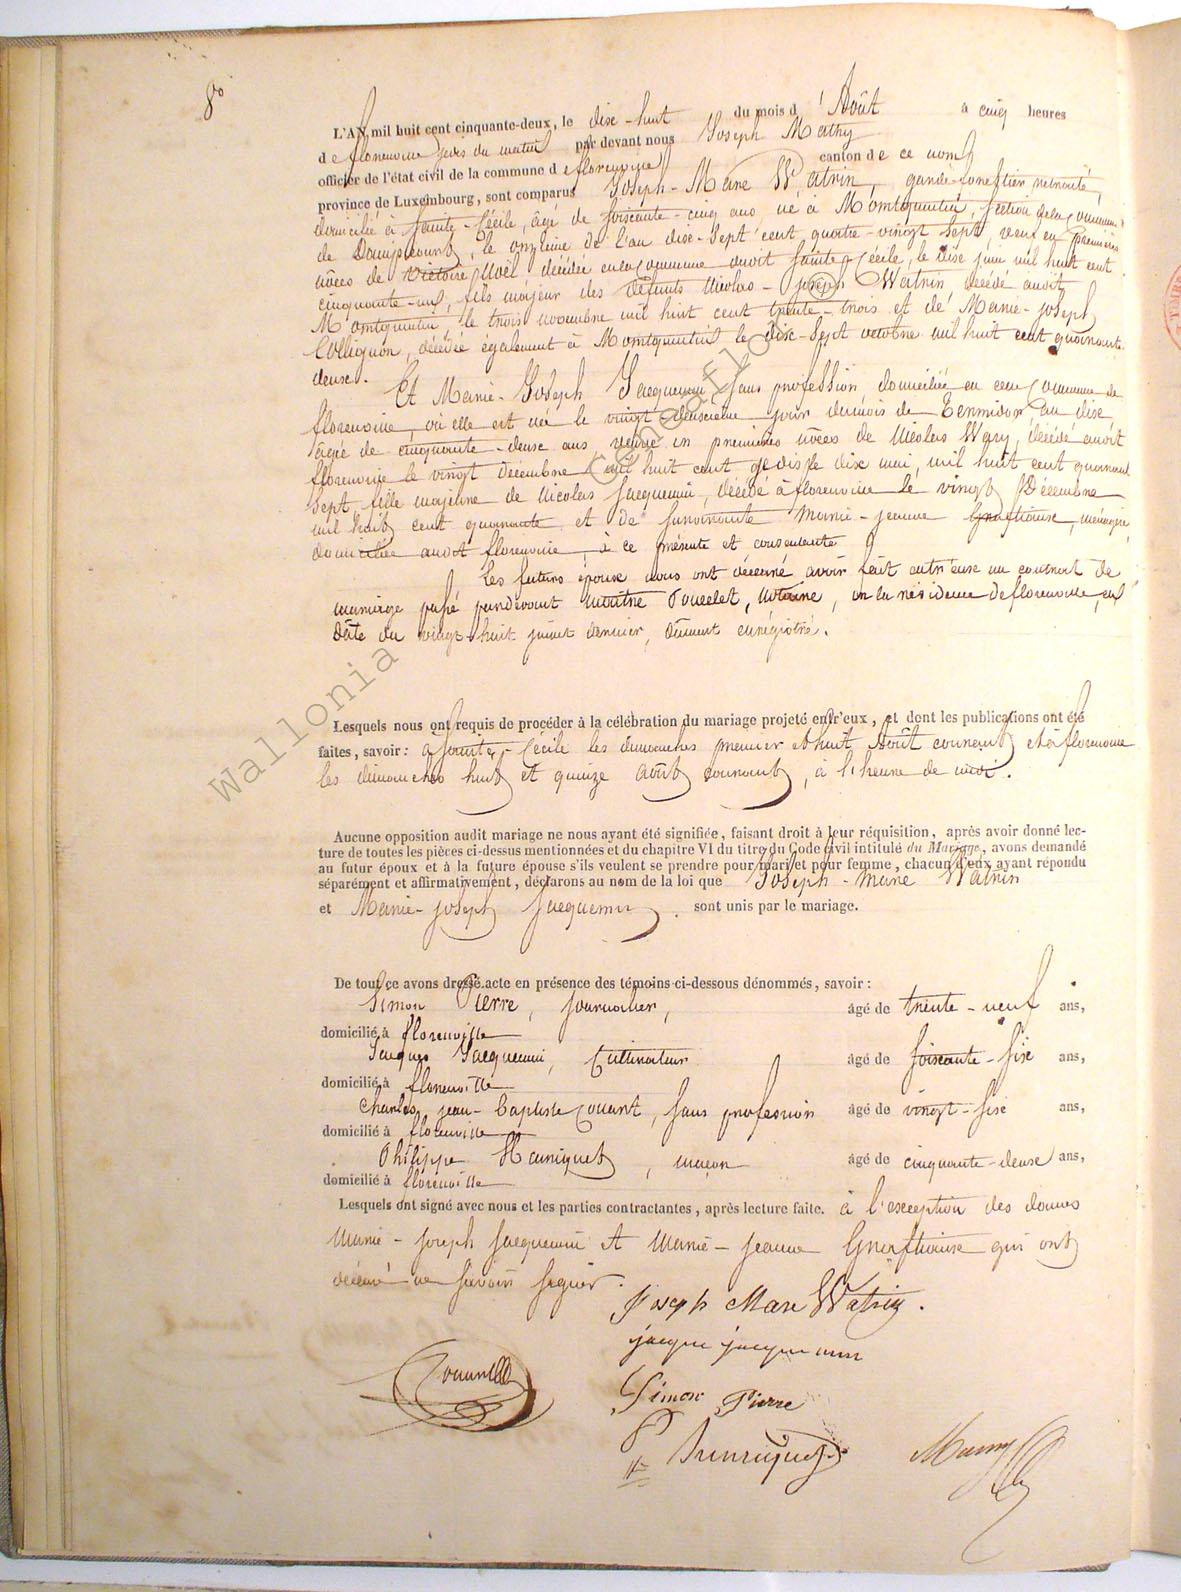 8°
L'AN mil huit cent cinquante-deux, le dix-huit du mois d'Août à cinq heures
d du matin par devant nous Joseph Mathy
officier de l'état civil de la commune de florenville canton de ce nom
province de Luxembourg, sont comparus Joseph-Marc Watrin, garde-forestier retraité,
domicilié à Sainte-Cécile, âgé de soixante-cinq ans, né à Montquintin, section de la commune
de Dampicourt, le onzième de l'an dix-sept cent quatre-vingt sept, veuf en premières
nôces de Victoire Noël décédée en la commune dudit Sainte-Cécile, le dix juin mil huit cent
cinquante-un, fils majeur des défunts Nicolas-Joseph Watrin décédé audit
Montquintin, le trois novembre mil huit cent trente-trois et de Marie-Joseph
Collignon, décédée également à Montquintin le dix-sept octobre mil huit cent quarante
deux.
Et Marie-Joseph Jacquemin, sans profession domiciliée en cette commune de
florenville, où elle est née le vingt deuxième jour du mois de Termidor an dix
âgée de cinquante-deux ans veuve en premières nôces de Nicolas Wary, décédé audit
florenville le vingt Décembre mil huit cent dix mai, mil huit cent quarante
sept, fille majeure de Nicolas Jacquemin, décédé à florenville le vingt Décembre
mil huit cent quarante et de survivante Marie-Jeanne, ménagère,
domiciliée audit florenville, à ce présente et consentante
Les futurs époux nous ont déclaré avoir fait entr'eux un contrat de
mariage passé pardevant maître Poncelet, Notaire, en la résidence de florenville, en
date du vingt-huit juillet dernier, dûment enrégistré.
Lesquels nous ont requis de procéder à la célébration du mariage projeté entr'eux, et dont les publications ont été
faites, savoir: à Sainte-Cécile les dimanches premier et huit Août courant et à florenville
les dimanches huit et quinze août courant, à l'heure de midi.
Aucune opposition audit mariage ne nous ayant été signifiée, faisant droit à leur réquisition, après avoir donné lec-
ture de toutes les pièces ci-dessus mentionnées et du chapitre VI du titre du Code civil intitulé du Mariage, avons demandé
au futur époux et à la future épouse s'ils veulent se prendre pour mari et pour femme, chacun d'eux ayant répondu
séparément et affirmativement, déclarons au nom de la loi que Joseph-Marc Watrin
et Marie-Joseph Jacquemin. sont unis par le mariage.
De tout ce avons dressé acte en présence des témoins ci-dessous dénommés, savoir:
Simon Pierre, journalier, âgé de trente-neuf ans,
domicilié à florenville
Jacques Jacquemin, Cultivateur âgé de soixante-six ans,
domicilié à florenville
Charles jean-Baptiste, sans profession âgé de vingt-six ans,
domicilié à florenville
Philippe, maçon âgé de cinquante-deux ans,
domicilié à florenville
Lesquels ont signé avec nous et les parties contractantes, après lecture faite. à l'exception des dames
Marie-Joseph Jacquemin et Marie-Jeanne qui ont
déclaré ne savoir signer.
Joseph Marc Watrin.
jacque jacquemin
Simon Pierre
Wallonia